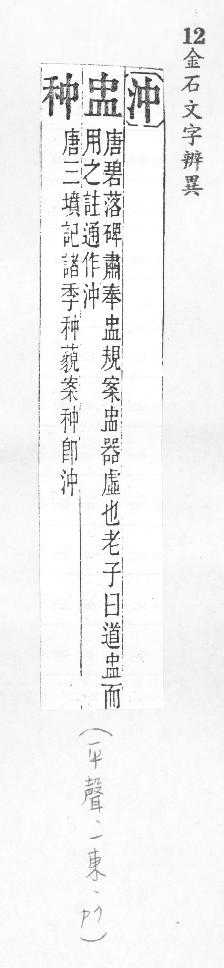 12金石文字辨異
沖
盅
唐碧落碑肅奉盅規案盅器虛也老子曰道盅而
用之註通作沖
种
唐三墳記諸季种藐案种卽沖
(平聲、一東、)